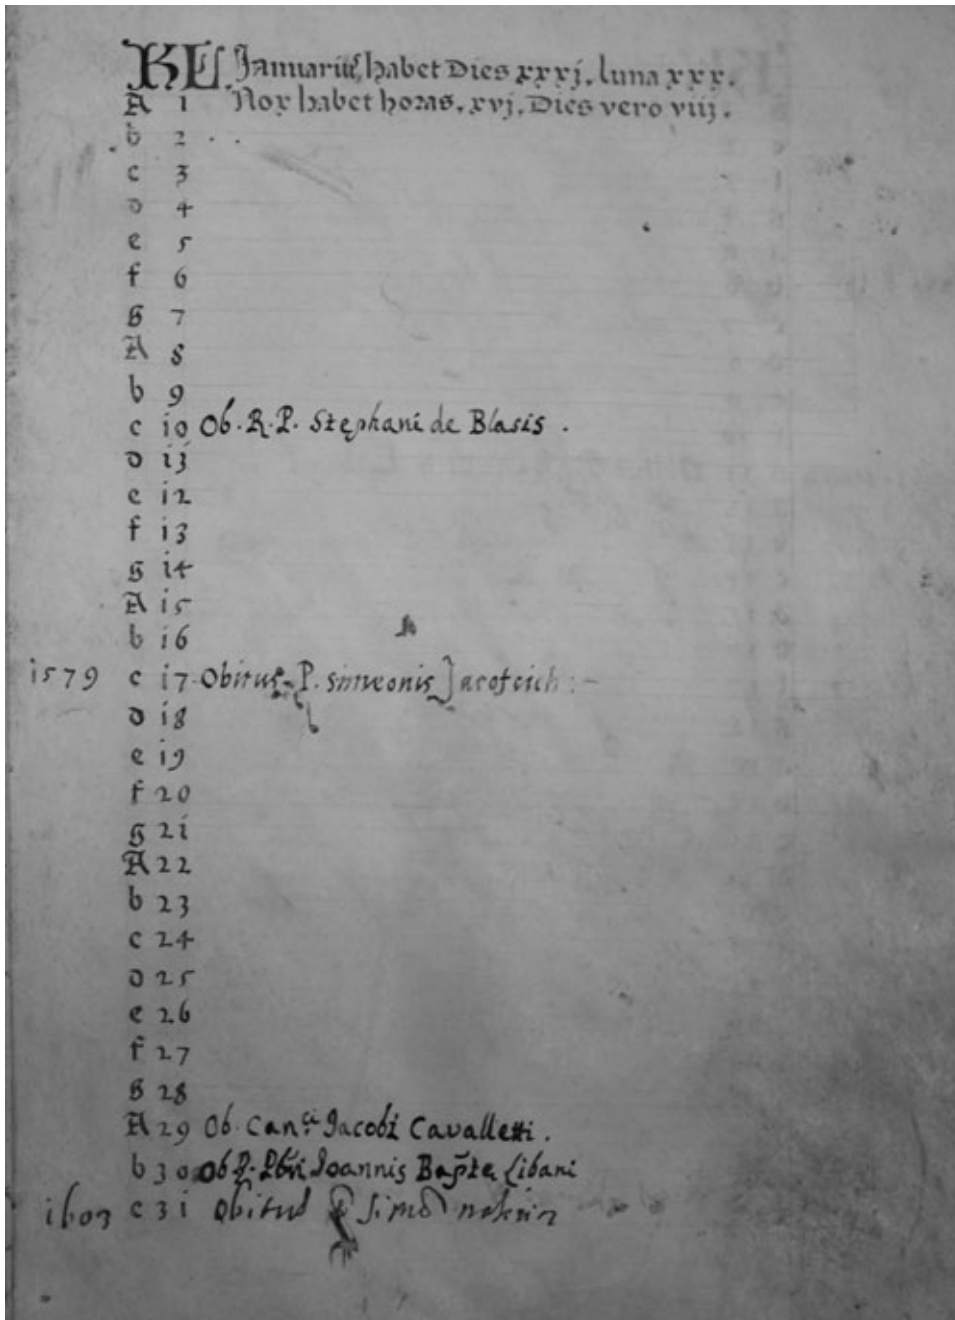 KL. Januarius habet Dies xxxj. luna xxx.
A 1 Nox habet horas. xvj. Dies vero viij.
b 2
c 3
d 4
e 5
f 6
g 7
A 8
b 9
c 10 Ob. R. P. Stephani de Blasis.
d 11
e 12
f 13
g 14
A 15
b 16
1579 c 17 Obitus P. Simeonis
d 18
e 19
f 20
g 21
A 22
b 23
c 24
d 25
e 26
f 27
g 28
A 29 Ob. Can.ci Jacobi Cavalletti.
b 30 Ob Joannis Bapte Libani
c 31 Obitus